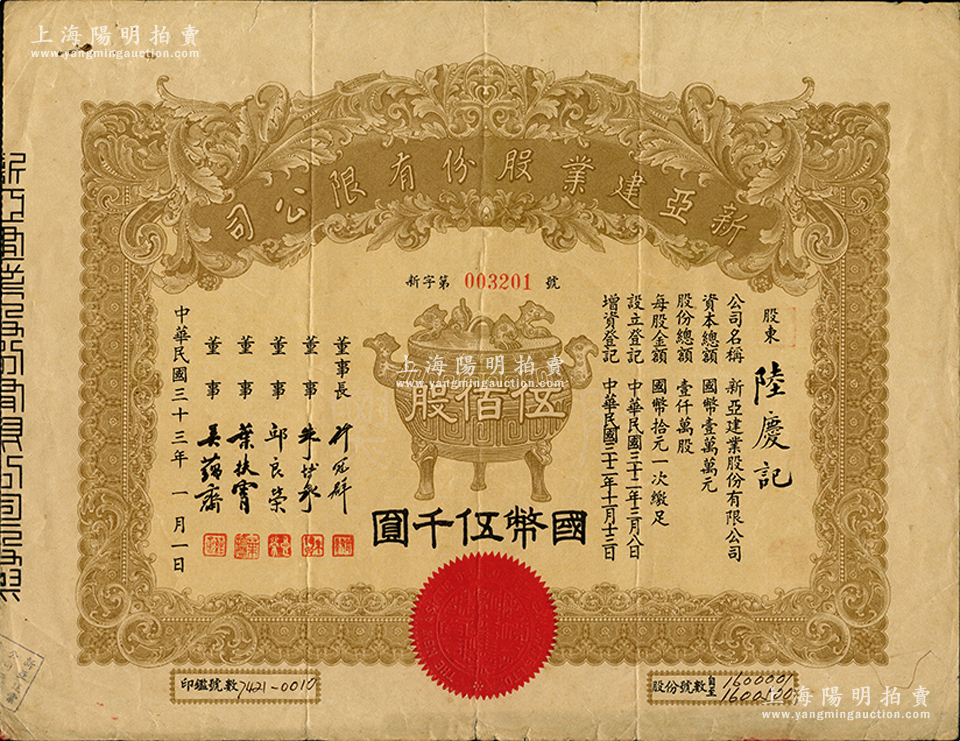 上海陽明拍賣
www.yangmingauction.com
上海陽明拍賣
www.yangmingauction.com
新亞建業股份有限公司
新字第 003201 號
股東 陸慶記
公司名稱 新亞建業股份有限公司
資本總額 國幣壹萬萬元
股份總額 壹仟萬股
每股金額 國幣拾元一次繳足
設立登記 中華民國三十二年三月八日
增資登記 中華民國三十二年十一月十三日
上海陽明拍賣
www.yangmingauction.com
伍佰股
國幣伍千圓
董事長
董事
董事 邱良榮
董事 葉扶霄
董事 吳蘊齋
中華民國三十三年一月一日
印鑑號數 7421-0010
股份號數 自 1600001
至 1600500
上海陽明拍賣
www.yangmingauction.com